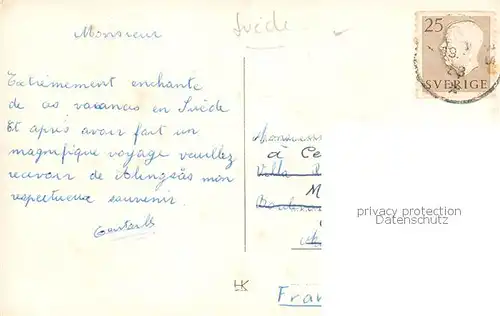 Monsieur
Suède
25
SVERIGE
Extrêmement enchanté
de ces vacances en Suède
Et après avoir fait un
magnifique voyage veuillez
recevoir de Alingsås mon
respectueux souvenir.
Monsieur
à Ce
Villa
M
Boulevar
privacy protection
Datenschutz
HK
Fran